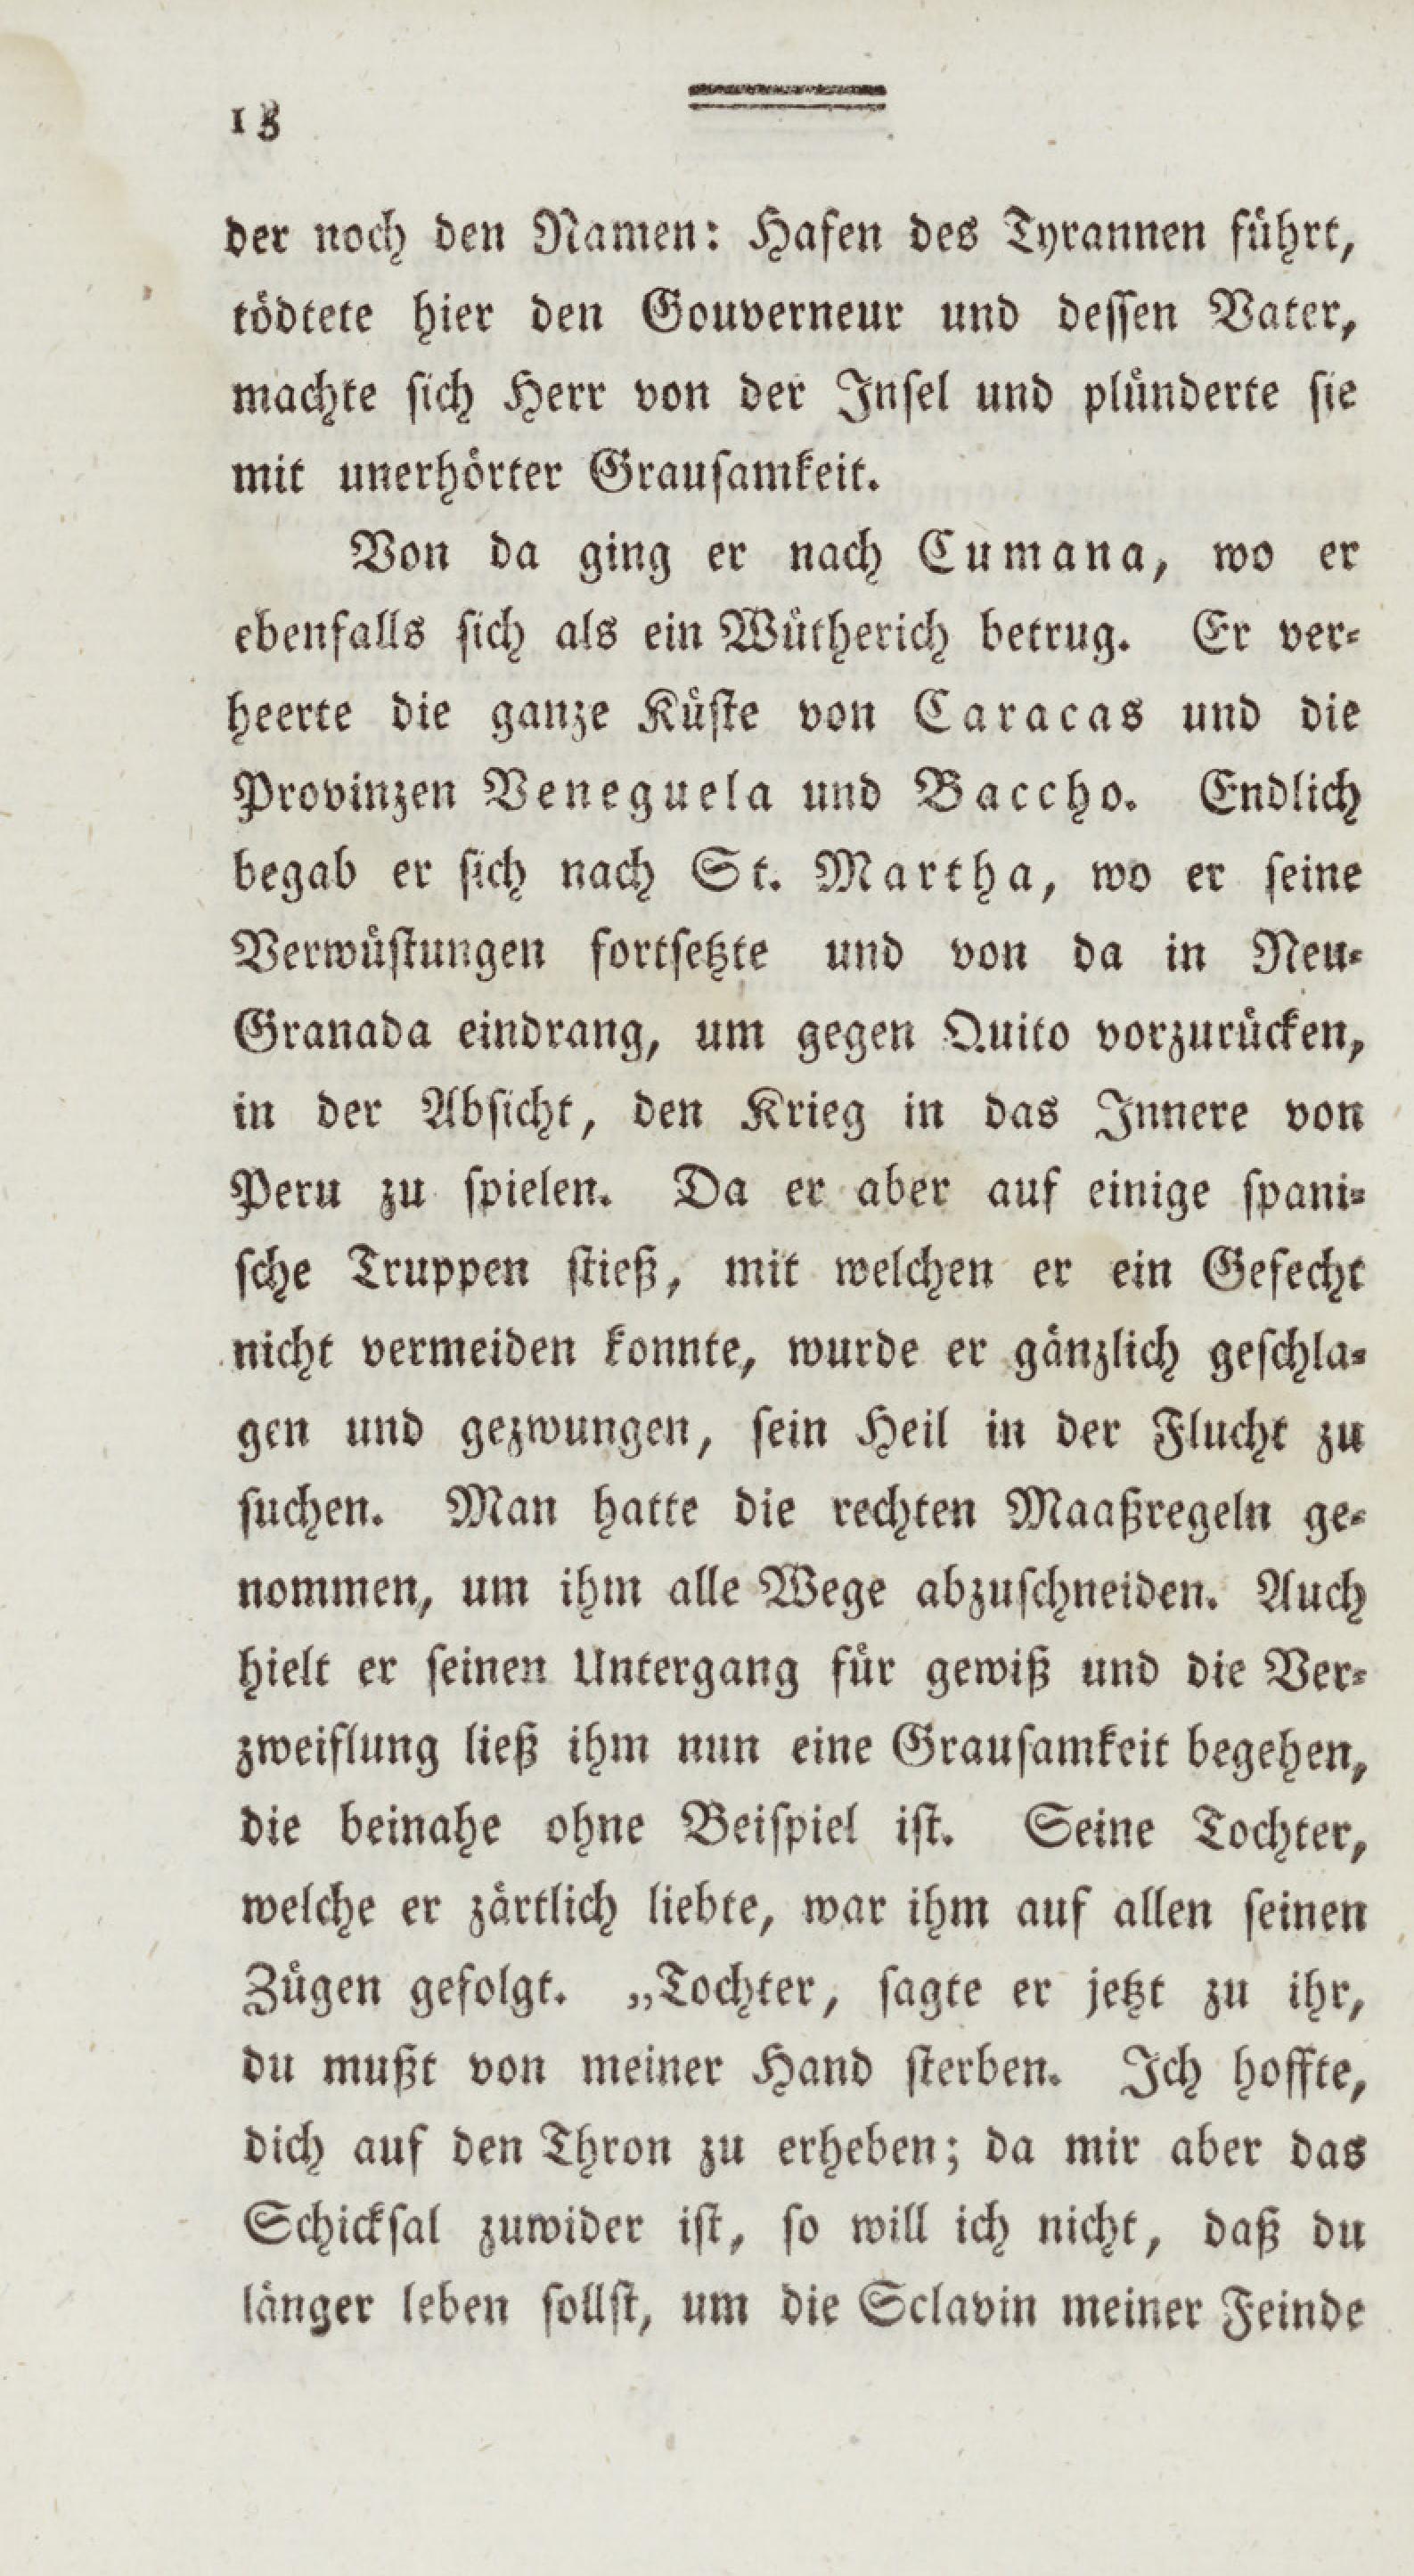 18
der noch den Namen: Hafen des Tyrannen führt,
tödtete hier den Gouverneur und dessen Vater,
machte sich Herr von der Insel und plünderte sie
mit unerhörter Grausamkeit.
Von da ging er nach Cumana, wo er
ebenfalls sich als ein Wütherich betrug. Er ver-
heerte die ganze Küste von Caracas und die
Provinzen Veneguela und Baccho. Endlich
begab er sich nach St. Martha, wo er seine
Verwüstungen fortsetzte und von da in Neu-
Granada eindrang, um gegen Quito vorzurücken,
in der Absicht, den Krieg in das Innere von
Peru zu spielen. Da er aber auf einige spani-
sche Truppen stieß, mit welchen er ein Gefecht
nicht vermeiden konnte, wurde er gänzlich geschla-
gen und gezwungen, sein Heil in der Flucht zu
suchen. Man hatte die rechten Maaßregeln ge-
nommen, um ihm alle Wege abzuschneiden. Auch
hielt er seinen Untergang für gewiß und die Ver-
zweiflung ließ ihm nun eine Grausamkeit begehen,
die beinahe ohne Beispiel ist. Seine Tochter,
welche er zärtlich liebte, war ihm auf allen seinen
Zügen gefolgt. „Tochter, sagte er jetzt zu ihr,
du mußt von meiner Hand sterben. Ich hoffte,
dich auf den Thron zu erheben; da mir aber das
Schicksal zuwider ist, so will ich nicht, daß du
länger leben sollst, um die Sclavin meiner Feinde